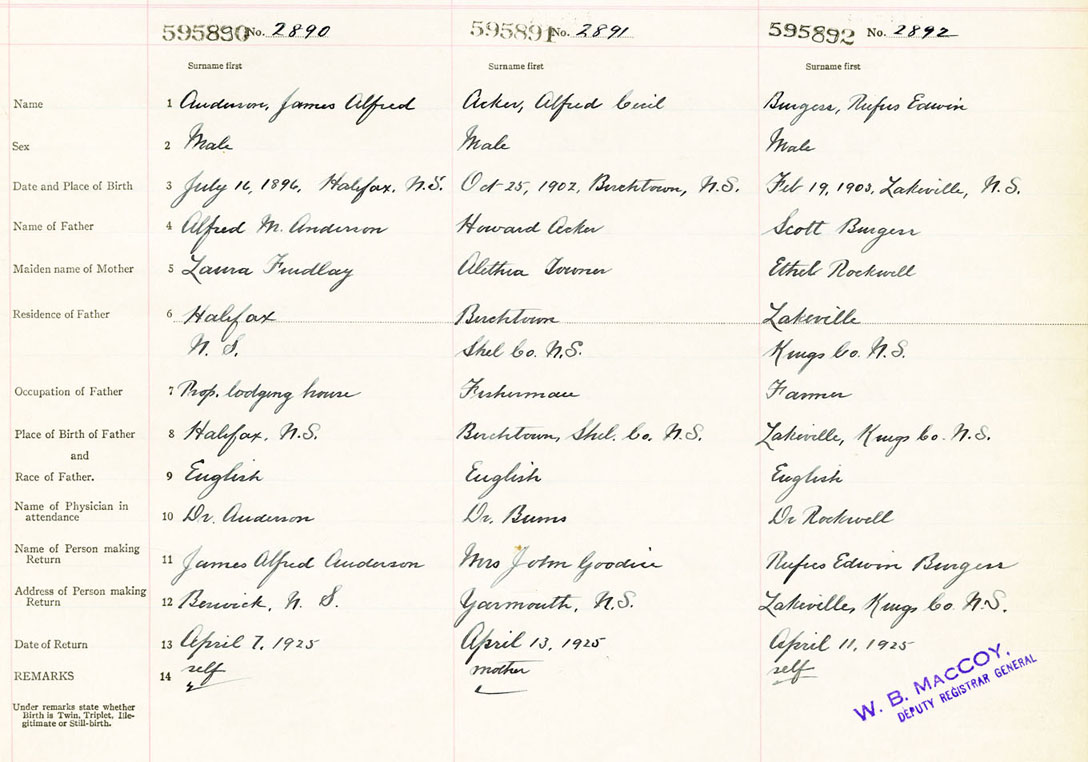 595890 No. 2890 595891 No. 2891 595892 No. 2892
Surname first Surname first Surname first
Name 1 Anderson, James Alfred Acker, Alfred Cecil Burgess, Rufus Edwin
Sex 2 Male Male Male
Date and Place of Birth 3 July 16, 1896, Halifax, N.S. Oct 25, 1902, Birchtown, N.S. Feb 19, 1903, Lakeville, N.S.
Name of Father 4 Alfred M. Anderson Howard Acker Scott Burgess
Maiden name of Mother 5 Laura Findlay Alethia Towner Ethel Rockwell
Residence of Father 6 Halifax Birchtown Lakeville
N. S. Shel Co. N.S. Kings Co. N.S.
Occupation of Father 7 Prop. lodging house Fisherman Farmer
Place of Birth of Father 8 Halifax, N.S. Birchtown, Shel. Co. N.S. Lakeville, Kings Co. N.S.
and
Race of Father. 9 English English English
Name of Physician in
attendance 10 Dr. Anderson Dr. Burns Dr Rockwell
Name of Person making
Return 11 James Alfred Anderson Mrs John Rufus Edwin Burgess
Address of Person making
Return 12 Berwick, N. S. Yarmouth, N.S. Lakeville, Kings Co. N.S.
Date of Return 13 April 7, 1925 April 13, 1925 April 11, 1925
REMARKS 14 self mother self
Under remarks state whether
Birth is Twin, Triplet, Ille-
gitimate or Still-birth.
W. B. MACCOY,
DEPUTY REGISTRAR GENERAL